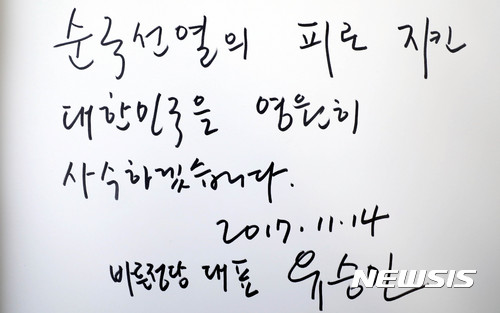 순국선열의 피로 지킨
대한민국을 영원히
사수하겠습니다.
2017.11.14
바른정당 대표 유승민
NEWSIS